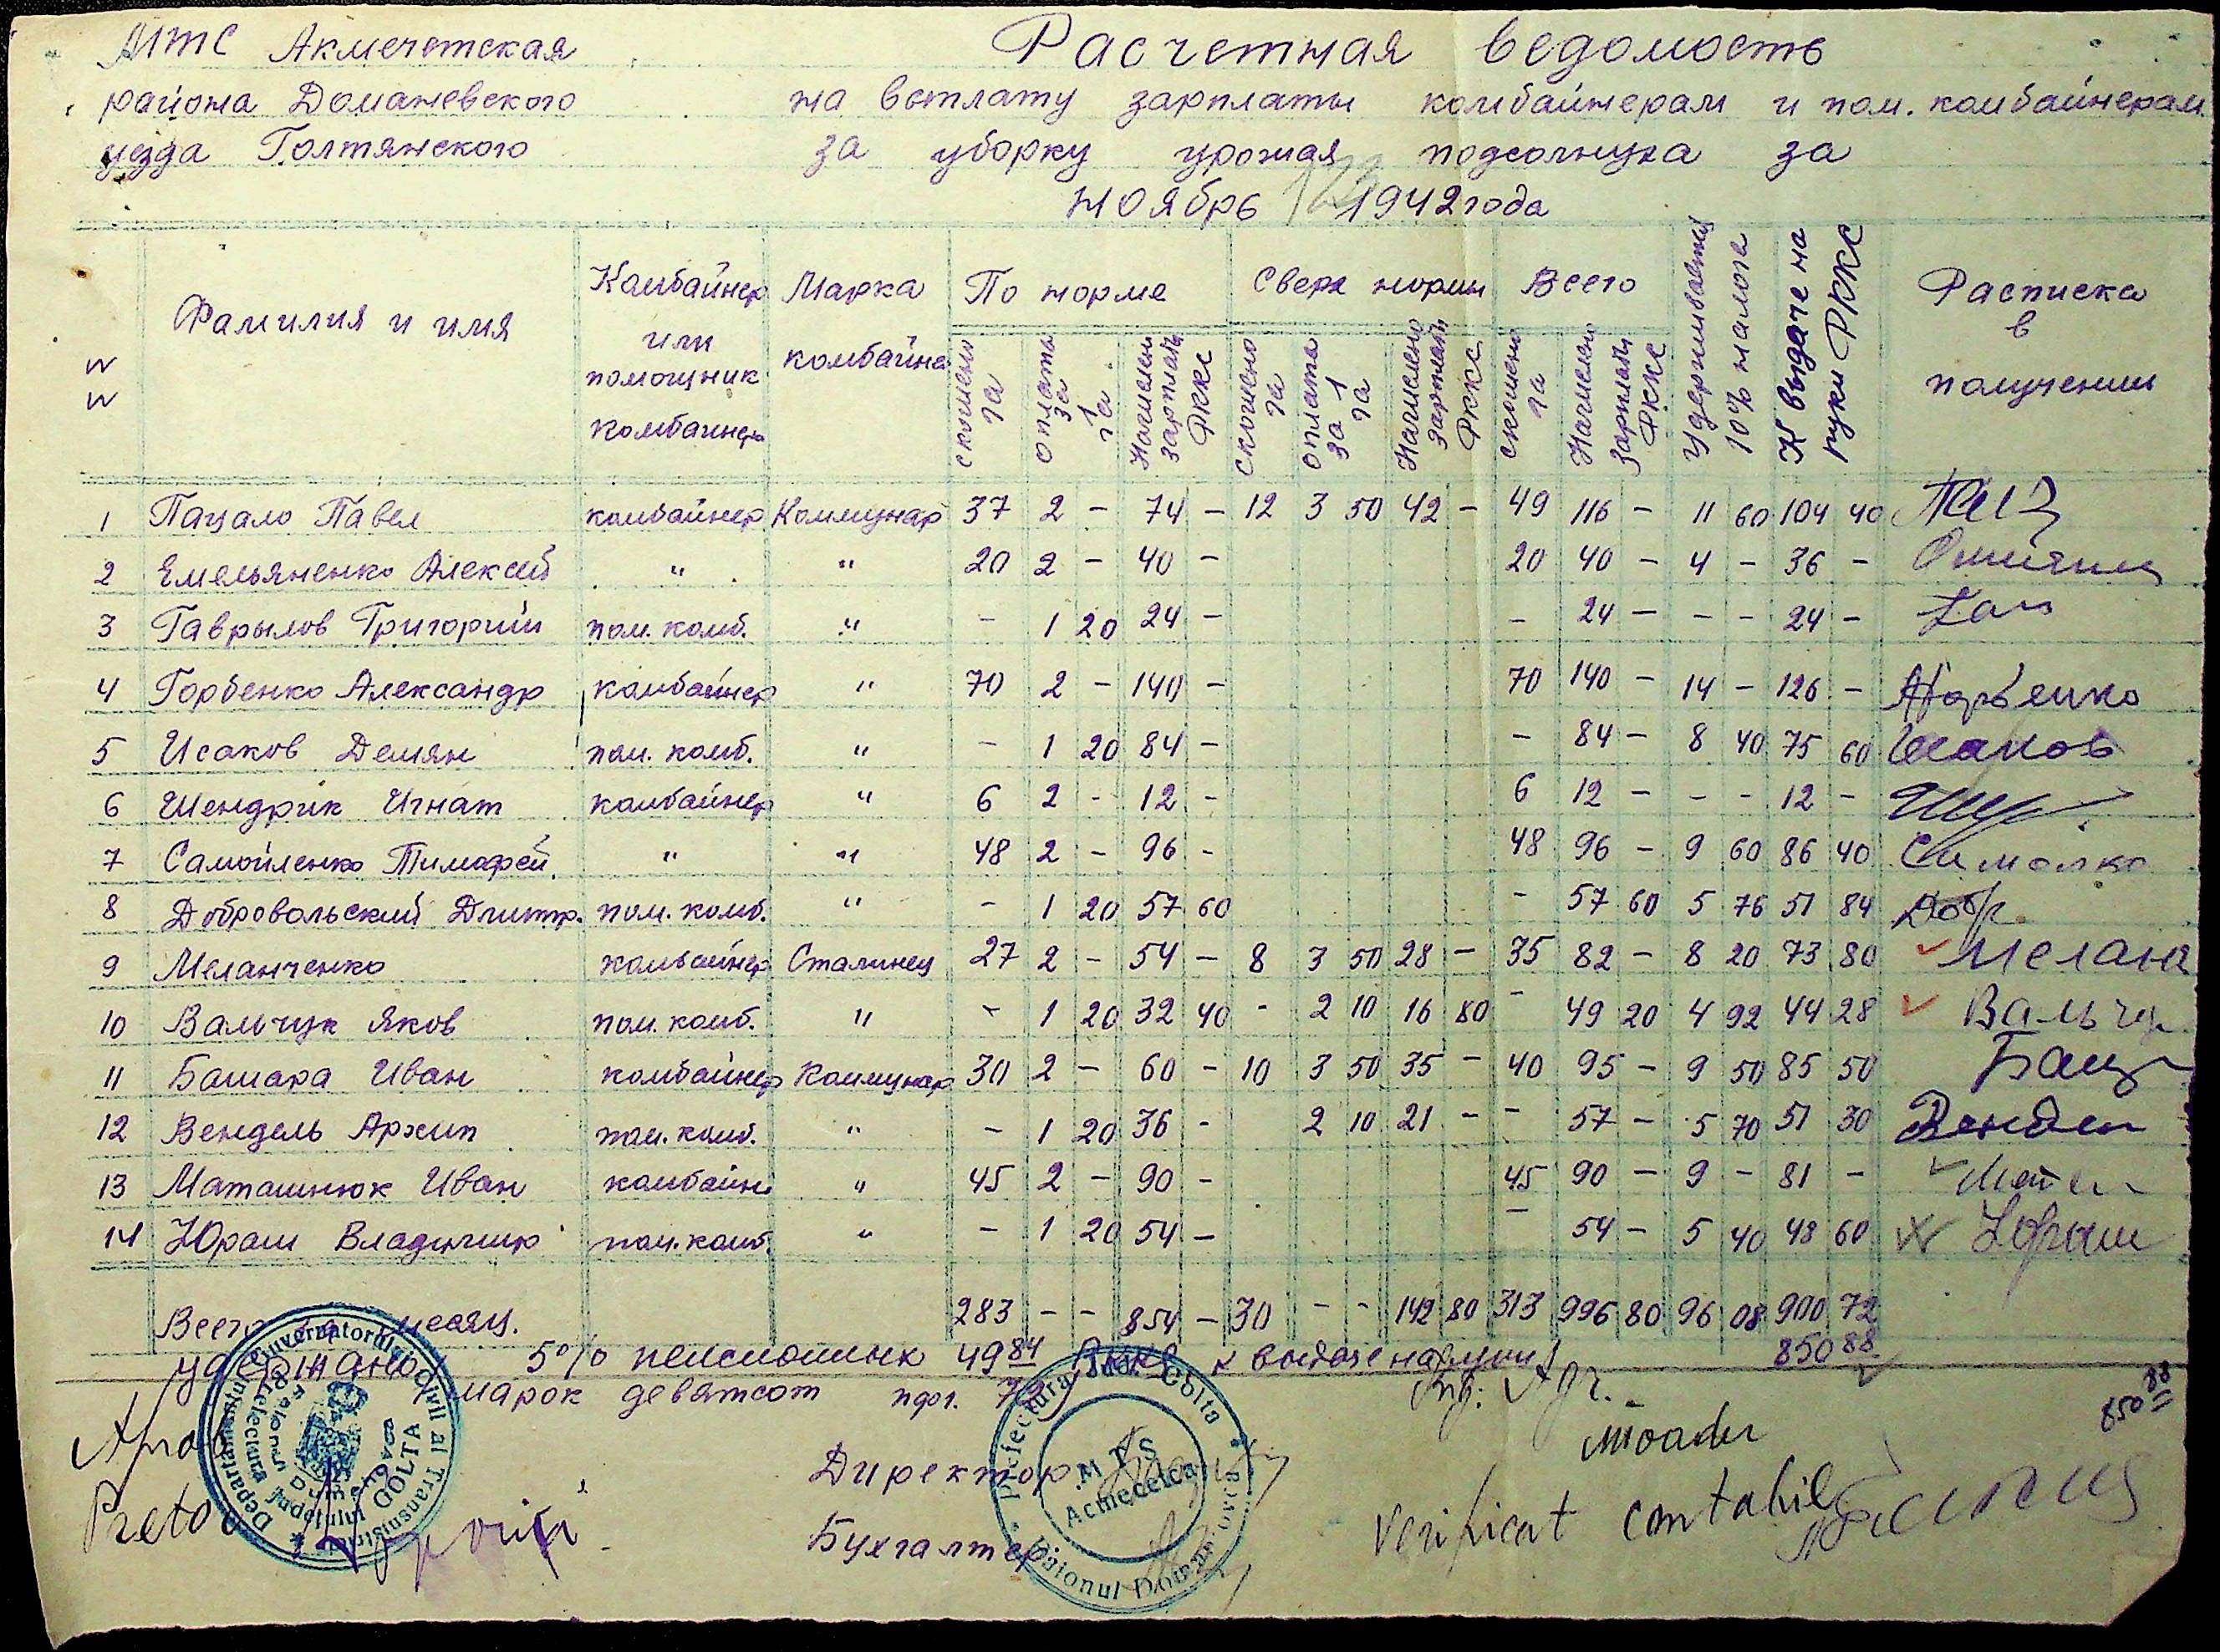 МТС Акмечетская
района Доманевского
уезда Голтянского
Расчетная ведомость
на выплату зарплаты комбайнерам и пом. комбайнерам
за уборку урожая подсолнуха за
ноябрь 1942 года
Фамилия и имя
Комбайнер или помощник комбайнера
Марка комбайна
По норме
Сверх нормы
Всего
Скошено га
Оплата за 1 га
Начислено зарплаты РККС
Скошено га
Оплата за 1 га
Начислено зарплаты РККС
Скошено га
Начислено зарплаты РККС
Удерживается 10% налога
К выдаче на руки РККС
Расписка в получении
1 Пацало Павел комбайнер Коммунар 37 2 - 74 - 12 3 50 42 - 49 116 - 11 60 104 40
2 Емельяненко Алексей " " 20 2 - 40 - 20 40 - 4 - 36 -
3 Гаврылов Григорий пом. комб. " - 1 20 24 - - 24 - - - 24 -
4 Горбенко Александр комбайнер " 70 2 - 140 - 70 140 - 14 - 126 - Горбенко
5 Исаков Демян пом. комб. " - 1 20 84 - - 84 - 8 40 75 60 Исаков
6 Шендрик Игнат комбайнер " 6 2 - 12 - 6 12 - - - 12 -
7 Самойленко Тимофей " " 48 2 - 96 - 48 96 - 9 60 86 40
8 Добровольский Дмитр. пом. комб. " - 1 20 57 60 - 57 60 5 76 51 84 Добр.
9 Меланченко комбайнер Сталинец 27 2 - 54 - 8 3 50 28 - 35 82 - 8 20 73 80 Мелана
10 Вальчук Яков пом. комб. " - 1 20 32 40 - 2 10 16 80 - 49 20 4 92 44 28 Вальчук
11 Башара Иван комбайнер Коммунар 30 2 - 60 - 10 3 50 35 - 40 95 - 9 50 85 50
12 Вендель Архип пом. комб. " - 1 20 36 - 2 10 21 - - 57 - 5 70 51 30 Вендел
13 Маташнюк Иван комбайн " 45 2 - 90 - 45 90 - 9 - 81 -
14 Юраш Владимир пом. комб. " - 1 20 54 - - 54 - 5 40 48 60 Юраш
Всего месяц. 283 - - 854 - 30 - - 142 80 313 996 80 96 08 900 72
удержано 5% пенсионных 49 84 к выдаче на руки 850 88
марок девятсот пфг. 72
850 88
Aprob
Pretor
Guvernatorul Civil al Transnistriei
Departamentul Prefectura Județului GOLTA
Директор
Бухгалтер
Prefectura Jud. Golta
M T S
Acmecetca
Raionul Doman
Ing. Agr.
Verificat contabil